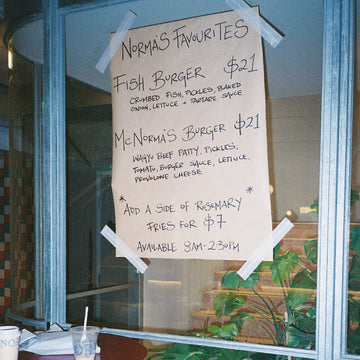 NORMA'S FAVOURITES
FISH BURGER $21
CRUMBED FISH, PICKLES, BAKED
ONION, LETTUCE + TARTARE SAUCE
McNORMA'S BURGER $21
WAGYU BEEF PATTY, PICKLES,
TOMATO, BURGER SAUCE, LETTUCE,
PROVOLONE CHEESE
* *
ADD A SIDE OF ROSEMARY
FRIES FOR $7
AVAILABLE 8AM-2:30PM